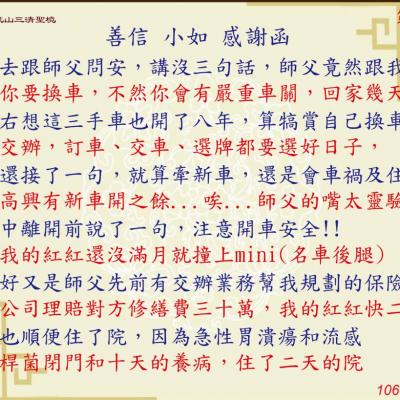 山三清聖境
善信 小如 感謝函
去跟師父問安，講沒三句話，師父竟然跟我
你要換車，不然你會有嚴重車關，回家幾天
右想這三手車也開了八年，算犒賞自己換車
交辦，訂車、交車、選牌都要選好日子，
還接了一句，就算牽新車，還是會車禍及住
高興有新車開之餘...唉...師父的嘴太靈驗
中離開前說了一句，注意開車安全!!
我的紅紅還沒滿月就撞上mini(名車後腿)
好又是師父先前有交辦業務幫我規劃的保險
公司理賠對方修繕費三十萬，我的紅紅快二
也順便住了院，因為急性胃潰瘍和流感
桿菌閉門和十天的養病，住了二天的院
106